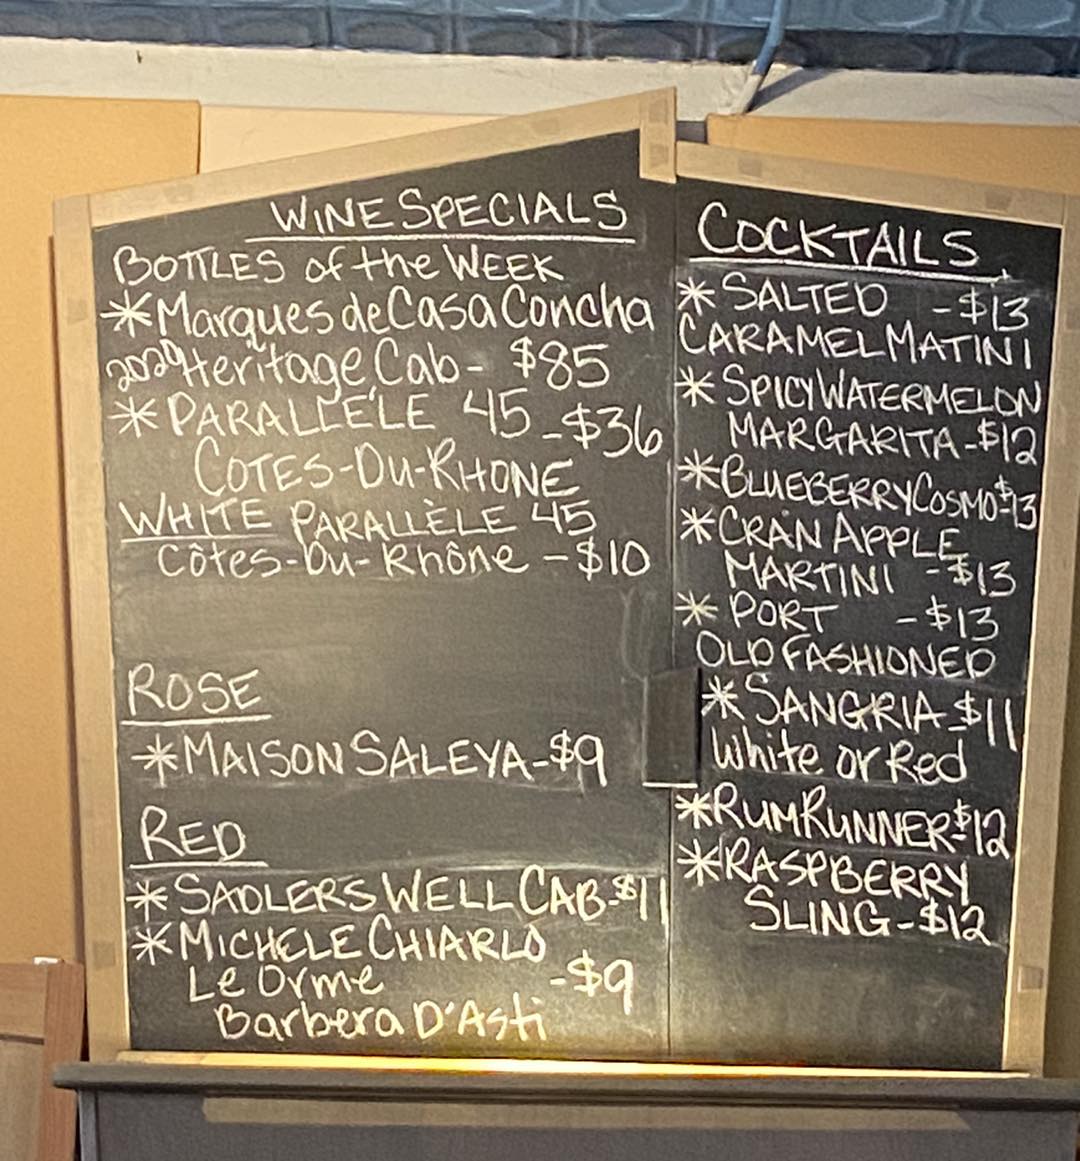 WINE SPECIALS
BOTTLES of the WEEK
*Marques de Casa Concha
2020 Heritage Cab- $85
*PARALLÈLE 45 -$36
COTES-DU-RHONE
WHITE PARALLÈLE 45
Côtes-Du-Rhône -$10
ROSE
*MAISON SALEYA-$9
RED
*SADLERS WELL CAB-$11
*MICHELE CHIARLO
Le Orme -$9
Barbera D'Asti
COCKTAILS
*SALTED -$13
CARAMEL MATINI
*SPICY WATERMELON
MARGARITA-$12
*BLUEBERRY COSMO-$13
*CRAN APPLE
MARTINI -$13
*PORT -$13
OLD FASHIONED
*SANGRIA-$11
White or Red
*RUM RUNNER-$12
*RASPBERRY
SLING-$12